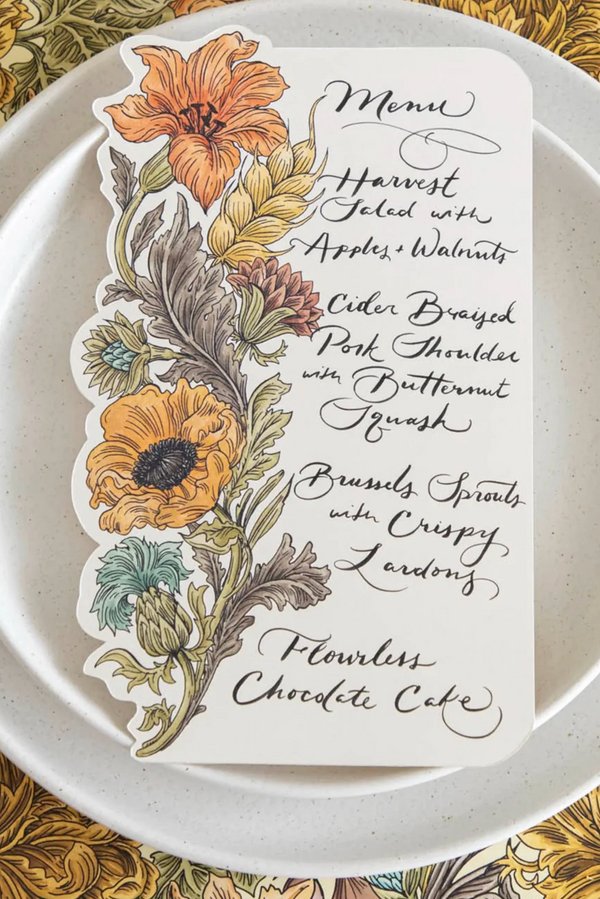 Menu
Harvest
Salad with
Apples + Walnuts
Cider Braised
Pork Shoulder
with Butternut
Squash
Brussels Sprouts
with Crispy
Lardons
Flourless
Chocolate Cake